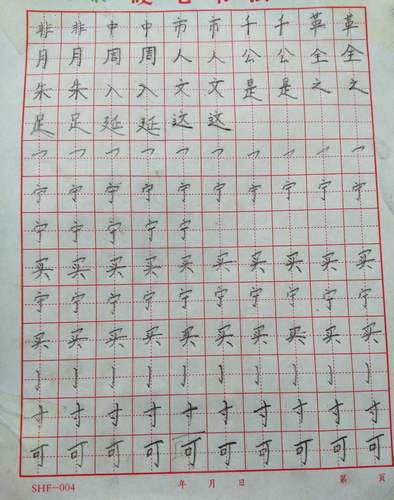 非非中中市市千千革革
月月周周人人公公全全
朱朱入入文文是是之之
足足延延这这
乛乛乛乛乛乛乛乛乛乛
宁宁宁宁宁宁宁宁宁宁
宁宁宁宁宁
买买买买买买买买买买
宁宁宁宁宁宁宁宁宁宁
买买买买买买买买买买
亅亅亅亅亅亅亅亅亅亅
寸寸寸寸寸寸寸寸寸寸
可可可可可可可可可可
SHF-004 年 月 日 第 页